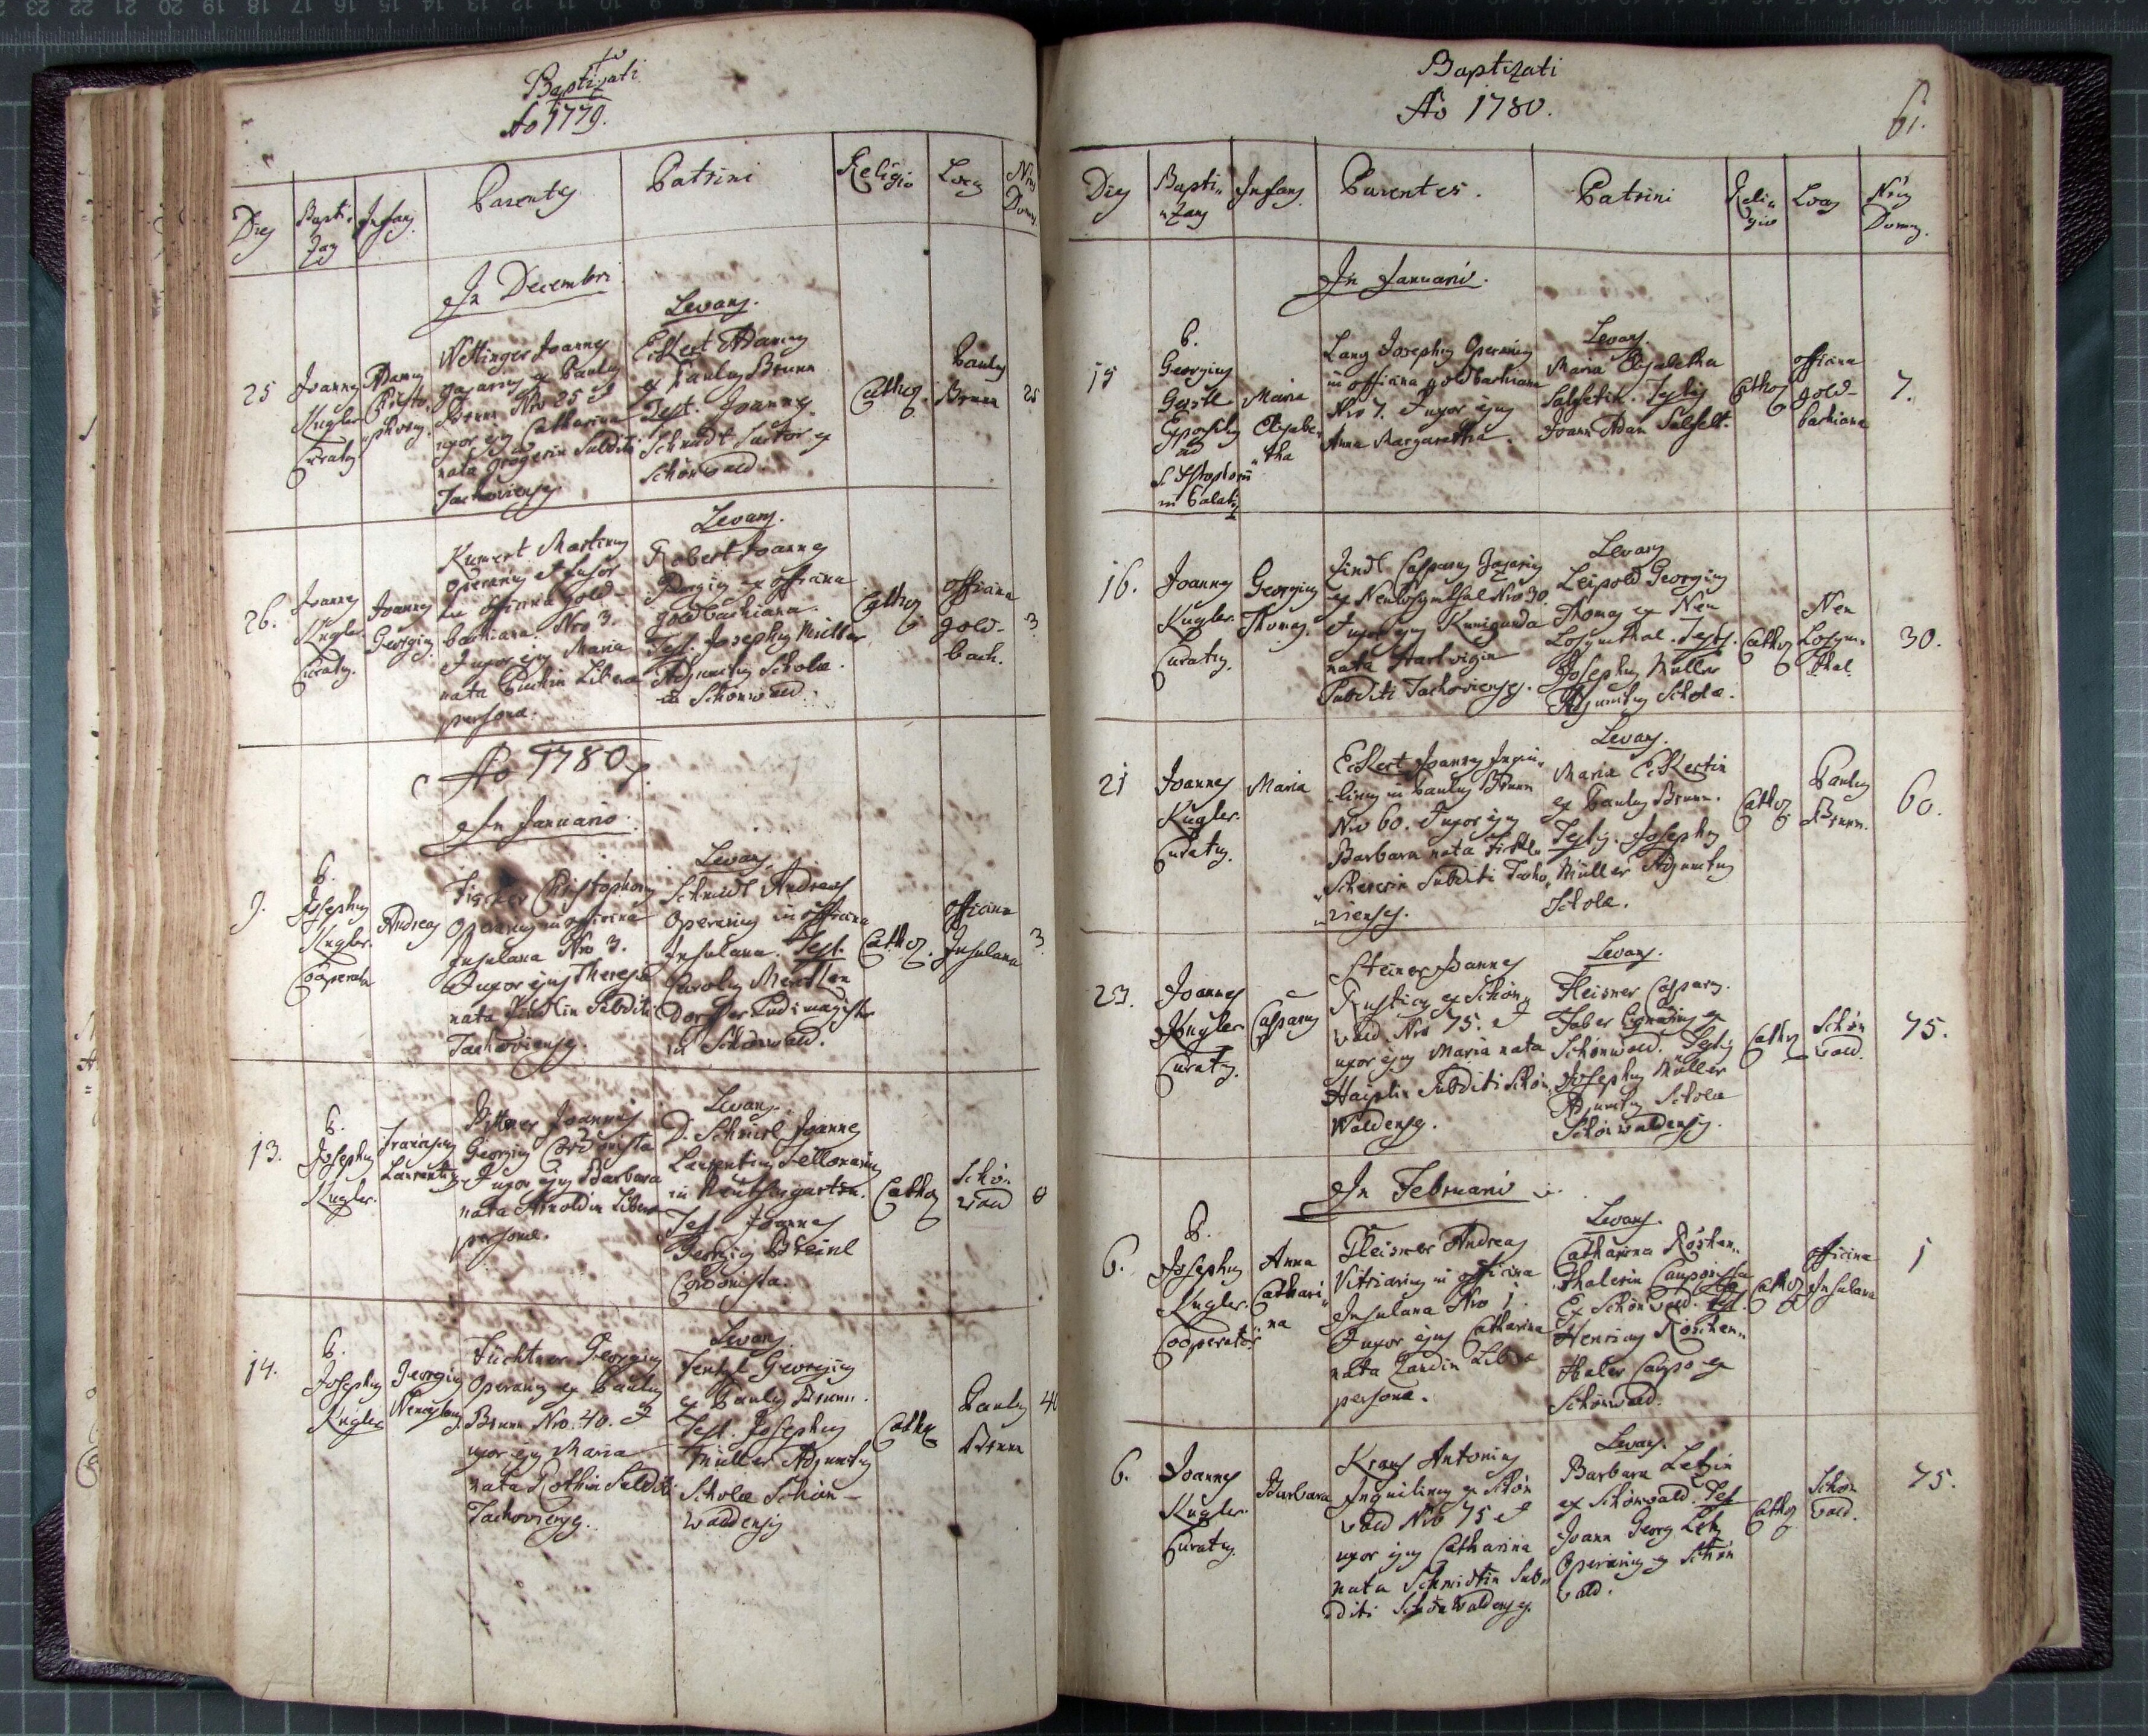 Baptizati
Ao 1779.
Dies
Bapti-
zans
Infans
Parentes
Patrini
Religio
Locus
Nrus
Domus
In Decembri
25
Joannes
Kugler
Curatus
Adamus
Christo-
phorus.
Joannes
ex Paulus
Brunn Nro 25 et
uxor ejus Catharina
nata Subditi
Tachovienses
Levans.
Eckert Adamus
ex Paulus Brunn
Test. Joannes
Schmidt Sartor ex
Schönwald.
Cathol.
Paulus
Brunn
25
26.
Joannes
Kugler
Curatus.
Joannes
Georgius
Martinus
Operarius et fusor
in officina Gold-
bachiana. Nro 3.
Et uxor ejus Maria
nata Liberae
personae.
Levans.
Robert Joannes
Georgius ex officina
Goldbachiana.
Test. Josephus Müller
Adjunctus Scholae
in Schönwald.
Cathol.
officina
Gold-
bach.
3
Ao 1780.
In Januario.
9.
P.
Josephus
Kugler
Cooperator
Andreas
Fischer Christophorus
Operarius in officina
Insulana Nro 3.
Et uxor ejus Theresia
nata Subditi
Tachovienses.
Levans
Schmidt Andreas
Operarius in officina
Insulana. Test.
Carolus
Dorffer Ludimagister
in Schönwald.
Cathol.
officina
Insulana
3
13.
P.
Josephus
Kugler.
Franciscus
Laurentius
Joannes
Georgius Cordonista
Et uxor ejus Barbara
nata Arnoldin Liberae
personae.
Levans.
D. Joannes
Laurentius Tellonarius
in
Test. Joannes
Georgius
Cordonista.
Cathol.
Schön
wald
14.
P.
Josephus
Kugler
Georgius
Wenceslaus
Füchtner Georgius
Operarius ex Paulus
Brunn Nro. 40. Et
uxor ejus Maria
nata Rothin Subditi
Tachovienses.
Levans
Georgius
ex Paulus Brunn.
Test. Josephus
Müller Adjunctus
Scholae Schön-
waldensis
Cathol
Paulus
Brunn
40
Baptizati
Ao 1780.
61.
Dies
Bapti-
zans
Infans
Parentes.
Patrini
Reli-
gio
Locus
Nrus
Domus.
In Januario.
15
P.
Georgius
Gerstl
Expositus
ad
in Palat:
Maria
Elisabe-
tha
Lang Josephus Operarius
in officina Goldbachiana
Nro 7. Et uxor ejus
Anna Margaretha.
Levans.
Maria Elisabetha
Testis
Joann Adam
Cathol
officina
Gold-
bachiana
7.
16.
Joannes
Kugler
Curatus.
Georgius
Thomas.
Casparus
ex Neulosymthal Nro 30.
Et uxor ejus Kunigunda
nata Hartwigin
Subditi Tachovienses.
Levans
Leipold Georgius
Thomas ex Neu
Losymthal. Testis.
Josephus Müller
Adjunctus Scholae.
Cathol
Neu
Losym-
thal.
30.
21
Joannes
Kugler.
Curatus.
Maria
Eckert Joannes Inqui-
linus in Paulus Brunn
Nro 60. Et uxor ejus
Barbara nata
Subditi Tacho-
vienses.
Levans.
Maria Eckertin
ex Paulus Brunn.
Testis. Josephus
Müller Adjunctus
Scholae.
Cathol
Paulus
Brunn.
60.
23.
Joannes
Kugler
Curatus.
Casparus
Steiner Joannes
Rusticus ex Schön-
wald Nro 75. et
uxor ejus Maria nata
Subditi Schön-
Waldenses.
Levans.
Fleisner Casparus.
Faber Lignarius ex
Schönwald. Testis
Josephus Müller
Adjunctus Scholae
Schönwaldensis.
Cathol
Schön
wald.
75.
In Februario
6.
P.
Josephus
Kugler.
Cooperator
Anna
Cathari-
na
Fleisner Andreas
Vitriarius in officina
Insulana Nro 1.
Et uxor ejus Catharina
nata Liberae
personae.
Levans.
Catharina Röshen-
thalerin
Ex Schönwald. Test.
Henricus Röschen-
thaler Caupo ex
Schönwald.
Cathol
officina
Insulana
1
6.
Joannes
Kugler
Curatus.
Barbara
Kraus Antonius
Inquilinus ex Schön
wald Nro 75 et
uxor ejus Catharina
nata Schmidtin Sub-
diti Schönwaldenses.
Levans.
Barbara Letzin
ex Schönwald. Test.
Joann Georg Letz
Operarius ex Schön
wald.
Cathol
Schön
wald.
75.